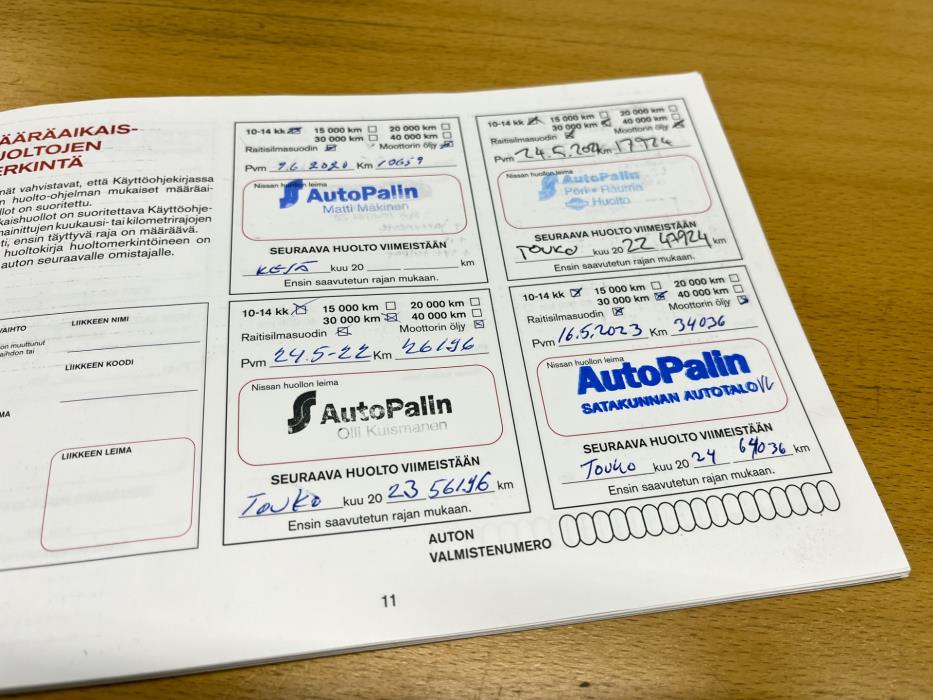 ÄÄRÄAIKAIS-
UOLTOJEN
ERKINTÄ
mät vahvistavat, että Käyttöohjekirjassa
n huolto-ohjelman mukaiset määräai-
llot on suoritettu.
kaishuollot on suoritettava Käyttöohje-
mainittujen kuukausi- tai kilometrirajojen
ti, ensin täyttyvä raja on määräävä.
huoltokirja huoltomerkintöineen on
auton seuraavalle omistajalle.
VAIHTO
on muuttunut
aihdon tai
LIIKKEEN NIMI
LIIKKEEN KOODI
MA
LIIKKEEN LEIMA
10-14 kk 15 000 km 20 000 km
30 000 km 40 000 km
Raitisilmasuodin Moottorin öljy
Pvm 9.6.2020 Km 10659
Nissan huollon leima
AutoPalin
Matti Mäkinen
SEURAAVA HUOLTO VIIMEISTÄÄN
KESÄ kuu 20 km
Ensin saavutetun rajan mukaan.
10-14 kk 15 000 km 20 000 km
30 000 km 40 000 km
Raitisilmasuodin Moottorin öljy
Pvm 24.5.2021 Km 17924
Nissan huollon leima
AutoPalin
Pori • Rauma
Huolto
SEURAAVA HUOLTO VIIMEISTÄÄN
TOUKO kuu 20 22 47924 km
Ensin saavutetun rajan mukaan.
10-14 kk 15 000 km 20 000 km
30 000 km 40 000 km
Raitisilmasuodin Moottorin öljy
Pvm 24.5-22 Km 26196
Nissan huollon leima
AutoPalin
Olli Kuismanen
SEURAAVA HUOLTO VIIMEISTÄÄN
TOUKO kuu 20 23 56196 km
Ensin saavutetun rajan mukaan.
10-14 kk 15 000 km 20 000 km
30 000 km 40 000 km
Raitisilmasuodin Moottorin öljy
Pvm 16.5.2023 Km 34036
Nissan huollon leima
AutoPalin
SATAKUNNAN AUTOTALO
SEURAAVA HUOLTO VIIMEISTÄÄN
TOUKO kuu 20 24 64036 km
Ensin saavutetun rajan mukaan.
AUTON
VALMISTENUMERO
11